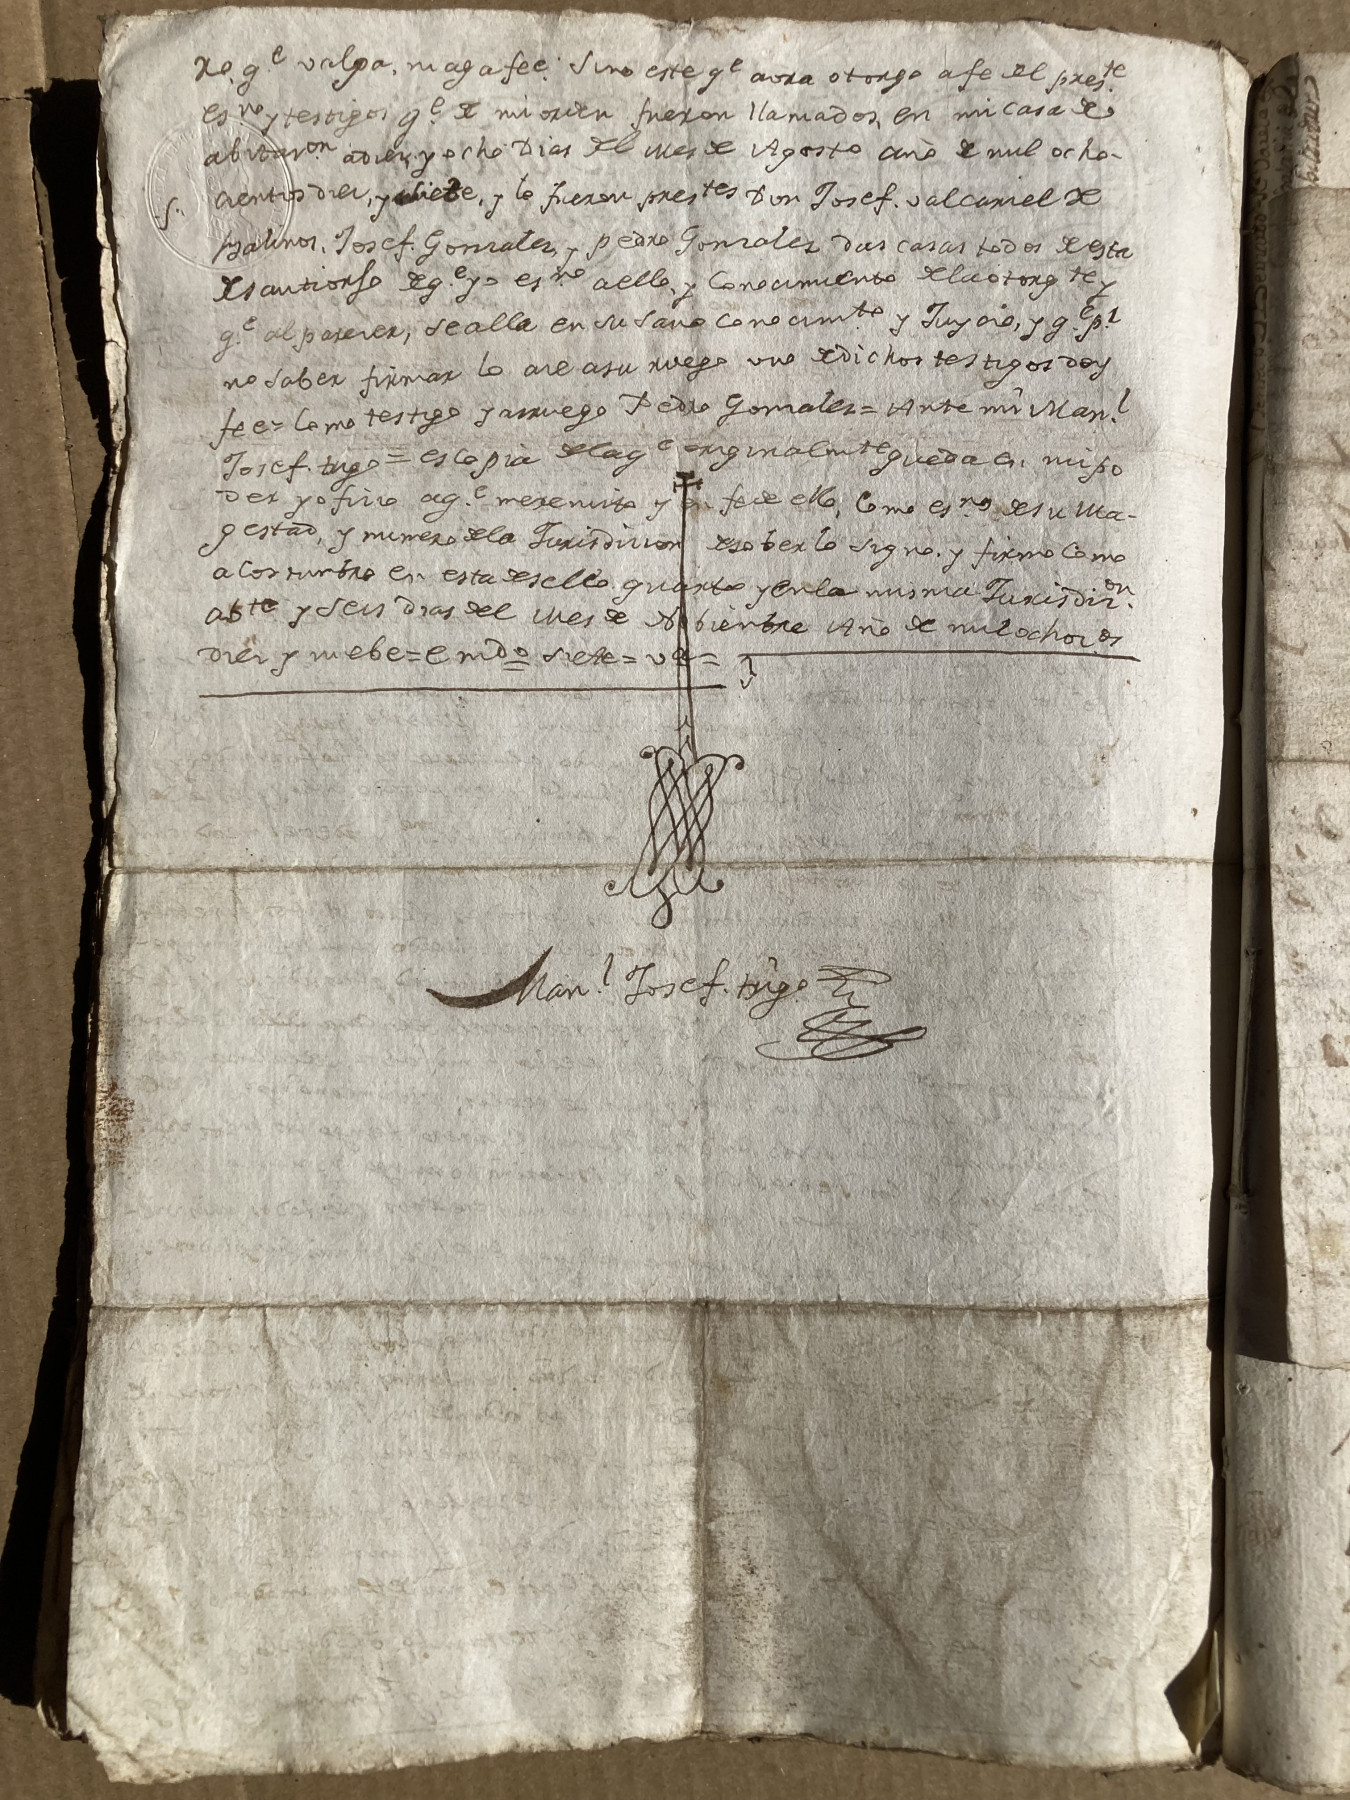 ro, q.e valga, ni aga fee: Sino este q.e aora otorgo a fe del pres.te
es.no y testigos q.e de mi orden fueron llamados, en mi casa de
abitaz.on a diez y ocho Dias del mes de Agosto año de mil ocho-
cientos diez, y siete, y lo fueron pres.tes Don Josef. valcarzel de
Josef. Gonzalez, y pedro Gonzalez das casas todos de esta
de q.e yo es.no de ello, y Conocimiento de la otorg.te y
q.e al parezer, se alla en su Sano Conocim.to y Juycio, y q.e p.r
no Saber firmar lo ace a su ruego uno de dichos testigos doy
fee= Como testigo y a rruego Pedro Gonzalez= Ante mi Man.l
Josef. trigo= es copia de la q.e originalm.te queda en mi po
der y oficio a q.e me remito y en fe de ello, Como es.no de su Ma-
gestad, y numero de la Jurisdicion de sober lo signo, y firmo Como
acostumbro en esta de sello quarto y en la misma Jurisdiz.on
a bte y Seis Dias del Mes de Nobiembre Año de mil ochoz.os
diez y nuebe= em.do= siete= v.e=
Man.l Josef. trigo